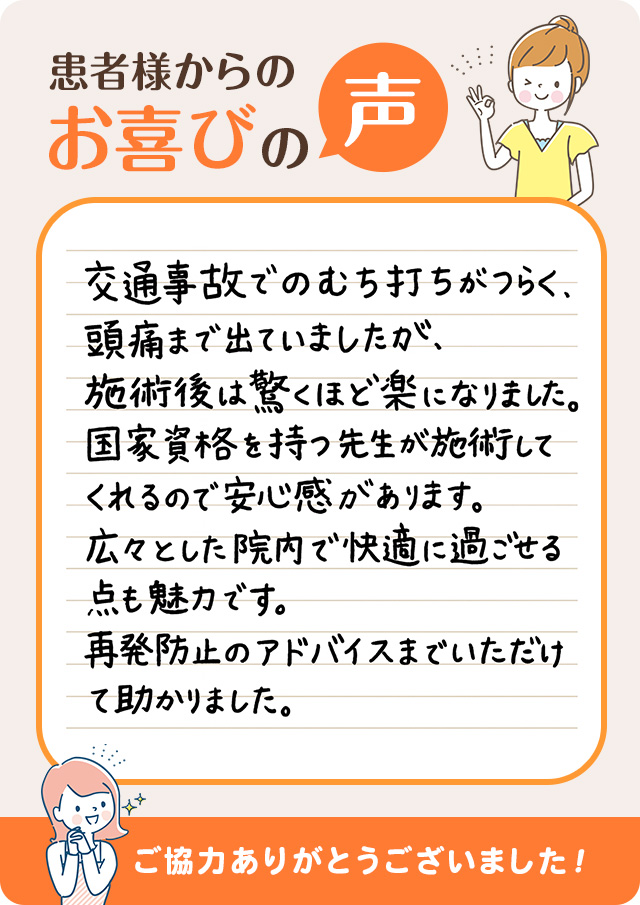 患者様からの
お喜びの声
交通事故でのむち打ちがつらく、
頭痛まで出ていましたが、
施術後は驚くほど楽になりました。
国家資格を持つ先生が施術して
くれるので安心感があります。
広々とした院内で快適に過ごせる
点も魅力です。
再発防止のアドバイスまでいただけ
て助かりました。
ご協力ありがとうございました!